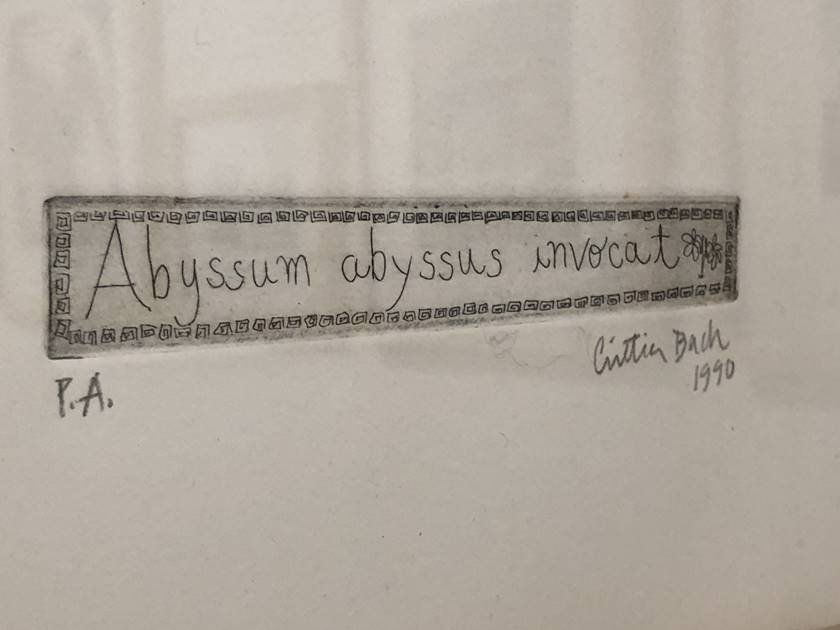 Abyssum abyssus invocat
P.A.
Bach
1990